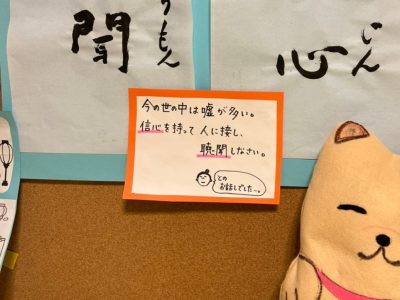 もん
聞
じん
心
今の世の中は嘘が多い。
信心を持って人に接し、
聴聞しなさい。
との
お話しでした〜。